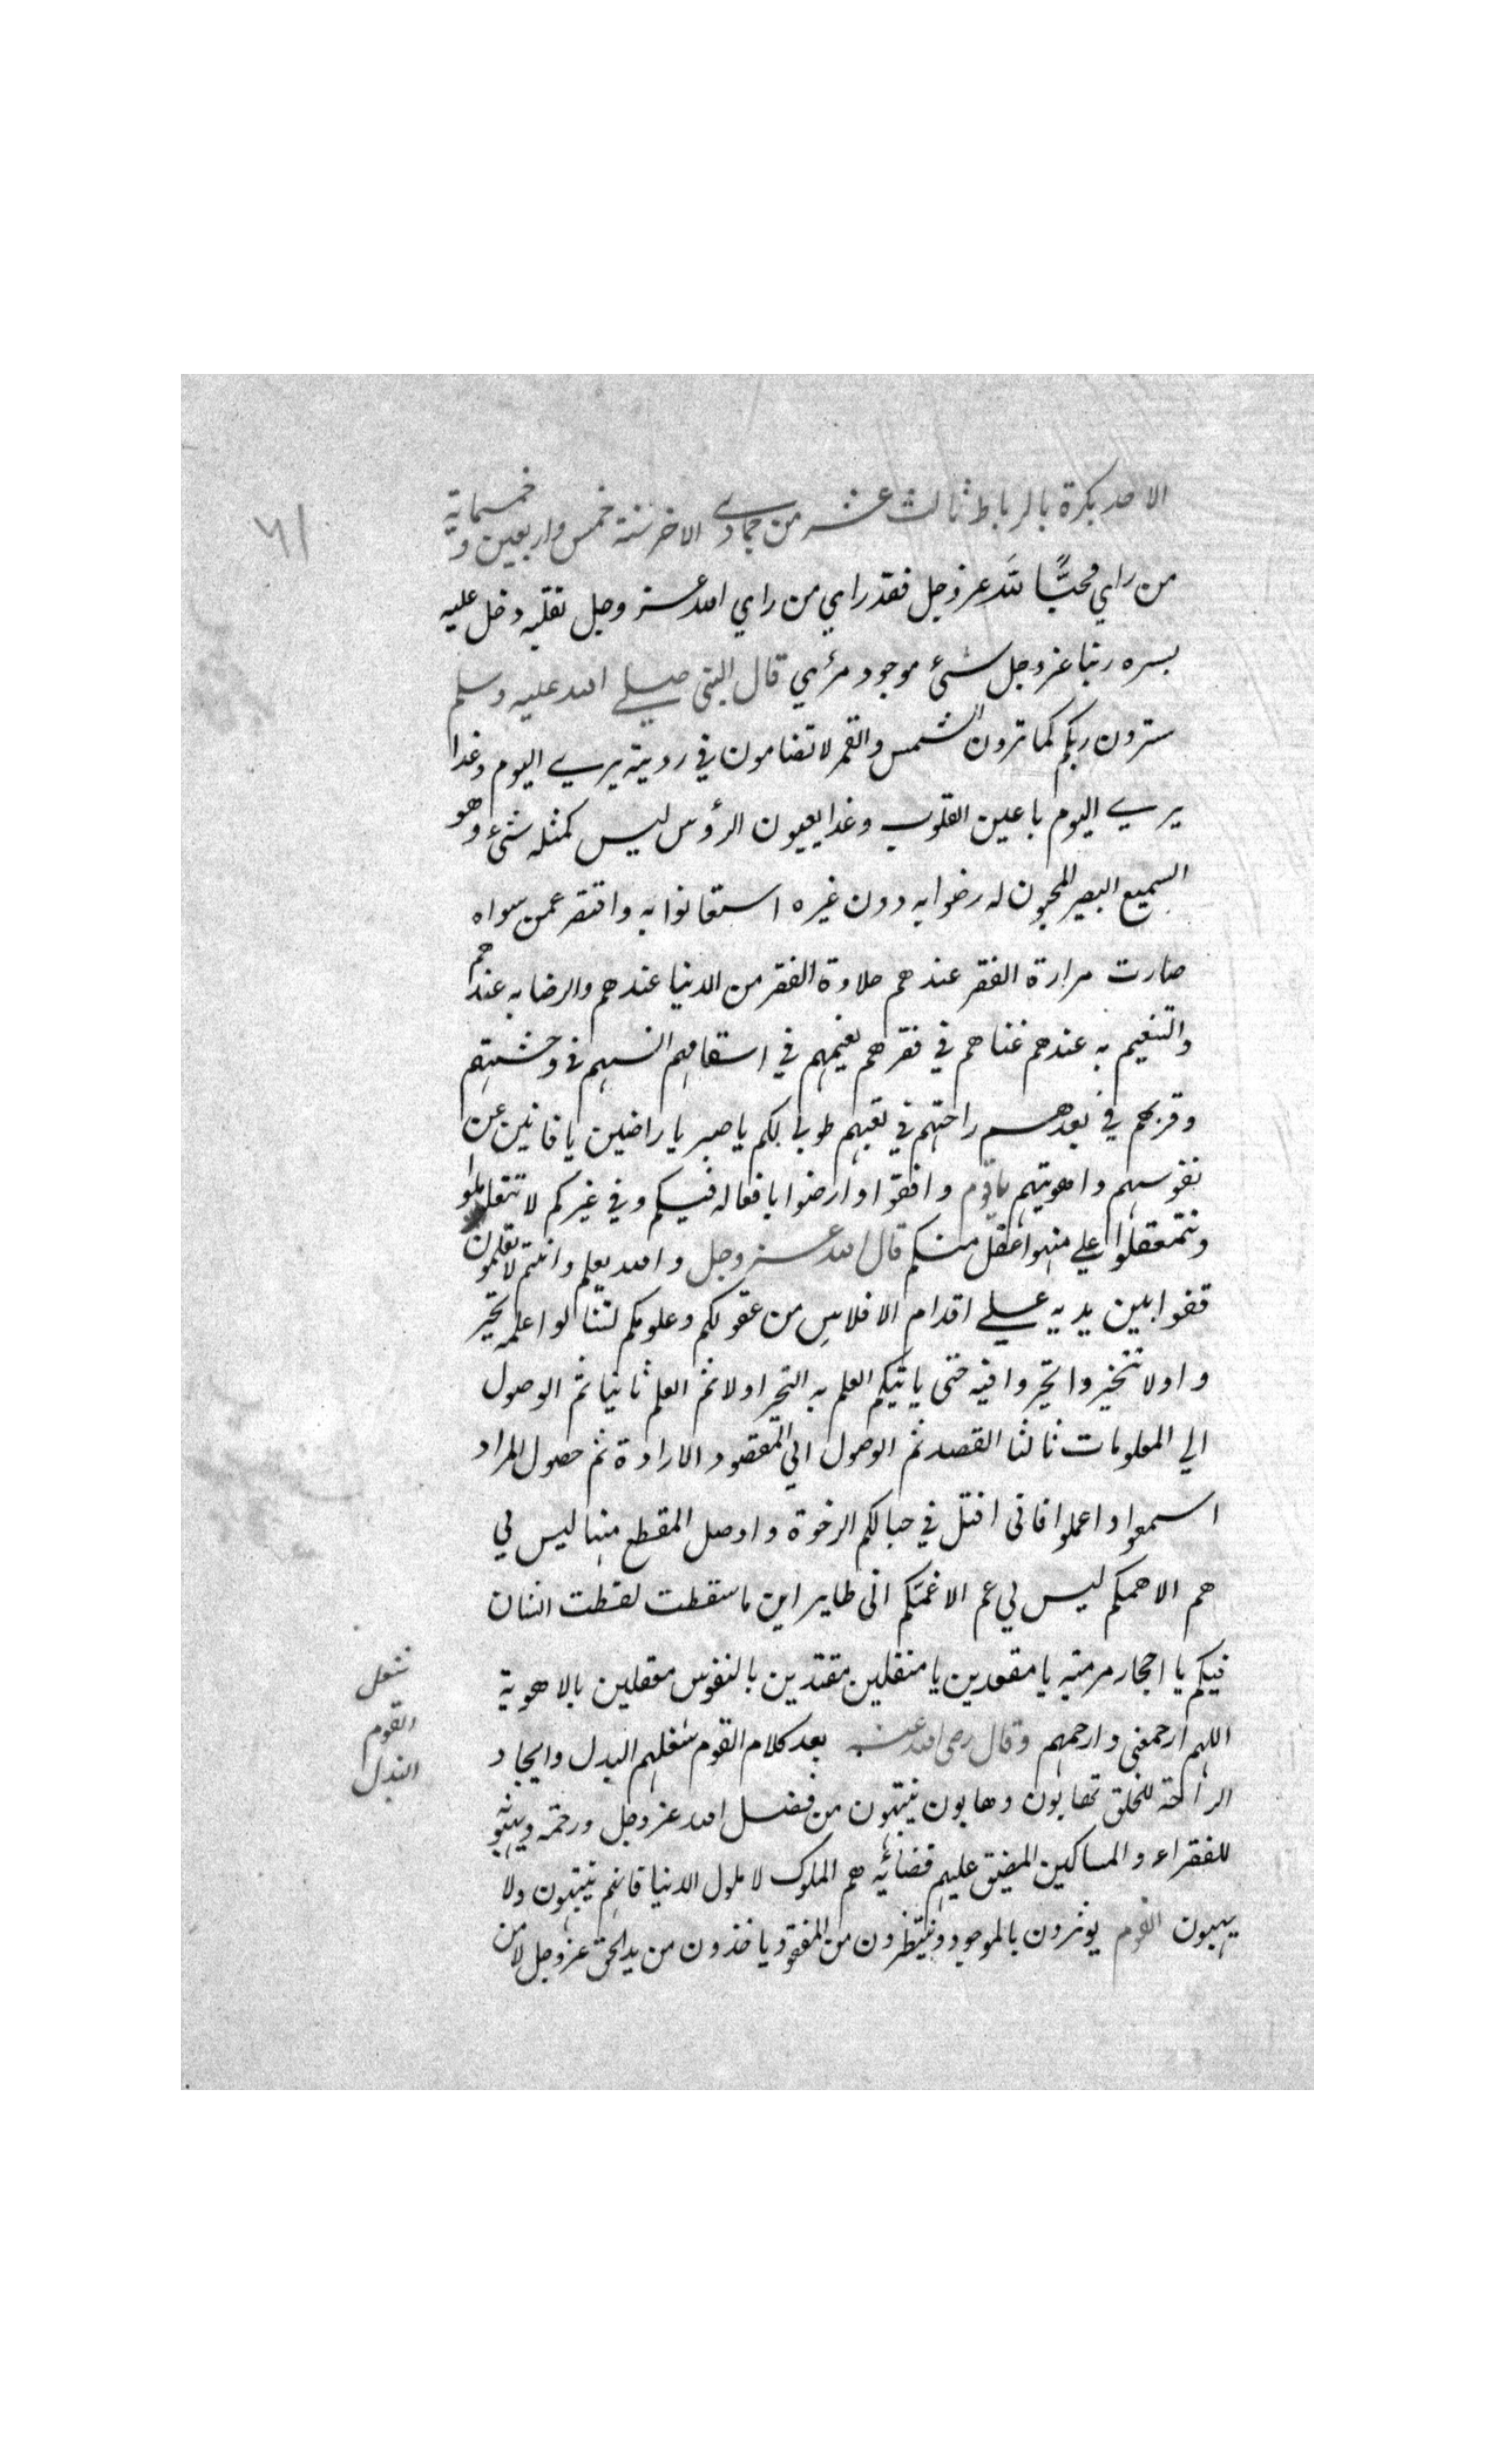 الاحد بكرة بالرباط ثالث عشر من جمادي الاخر سنة خمس واربعين و خمسماية
٦١
من راي محبًّا لله عز وجل فقد راي من راي الله عز وجل بقلبه دخل عليه
بسره ربنا عز وجل شيء موجود مرئي قال النبي صلي الله عليه وسلم
سترون ربكم كما ترون الشمس والقمر لا تضامون في رويته يري اليوم وغدا
يري اليوم باعين القلوب وغدا بعيون الرؤس ليس كمثله شيء وهو
السميع البصير المحبون له رضوا به دون غيره استعانوا به واقتصر عمن سواه
صارت مرارة الفقر عندهم حلاوة الفقر من الدنيا عندهم والرضا به عندهم
والتنعيم به عندهم غناهم في فقرهم نعيمهم في اسقامهم انسهم في وحشتهم
وقربهم في بعدهم راحتهم في تعبهم طوبا لكم يا صبر يا راضين يا فانين عن
نفوسهم واهويتهم يا قوم وافقوا وارضوا بافعاله فيكم وفي غيركم لا
وتتمعقلوا علي من هو اعقل منكم قال الله عز وجل والله يعلم وانتم لا تعلمون
قفوا بين يديه علي اقدام الافلاس من عقولكم وعلومكم لتنالوا علمه تحير
وا ولا تتخيروا تحيروا فيه حتى ياتيكم العلم به التحير اولا ثم العلم ثانيا ثم الوصول
الي المعلومات ثالثا القصد ثم الوصول الي المقصود الارادة ثم حصول المراد
اسمعوا واعملوا فاني افتل في حبالكم الرخوة واوصل المقطع منها ليس لي
هم الا همكم ليس لي غم الا غمكم اني طاير اين ما سقطت لقطت الشان
فيكم يا احجار مرمية يا مقعدين يا مثقلين مقيدين بالنفوس معقلين بالاهوية
اللهم ارحمني وارحمهم وقال رضي الله عنه بعد كلام القوم شغلهم البدل وايجاد
شغل
القوم
البدل
الراحة للخلق نهابون وهابون ينتهبون من فضل الله عز وجل ورحمته ويهبونه
للفقراء والمساكين المضيق عليهم هم الملوك لا ملوك الدنيا فانهم ينتهبون ولا
يهبون القوم يوثرون بالموجود وينتظرون من المفقود ياخذون من يد الحق عز وجل لا من